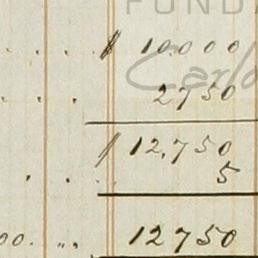 FUNDA
$ 10.000
Carlo
2750
$ 12,750
5
00. „ 12750